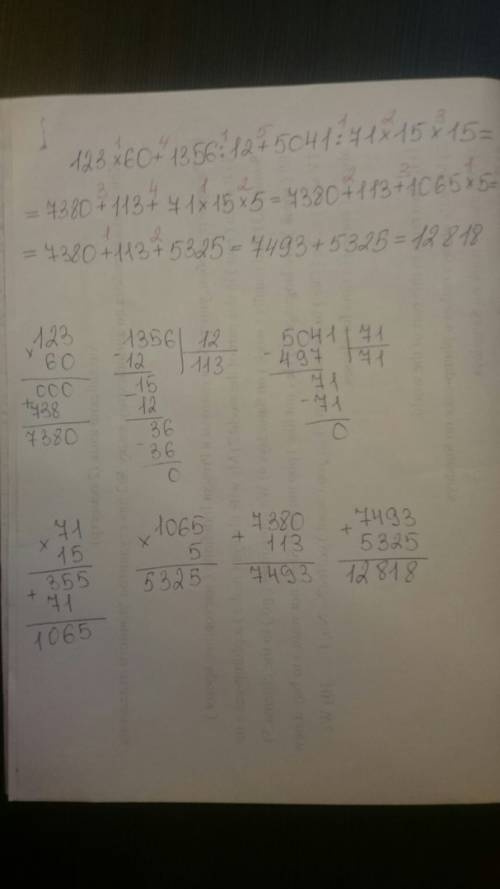 123×60+1356:12+5041:71×15×15=
=7380+113+71×15×5=7380+113+1065×5=
=7380+113+5325=7493+5325=12818
×123
60
000
+738
7380
1356|12
-12 113
-15
12
-36
36
0
5041|71
-497 71
71
-71
0
×71
15
355
+
71
1065
×1065
5
5325
+7380
113
7493
+7493
5325
12818